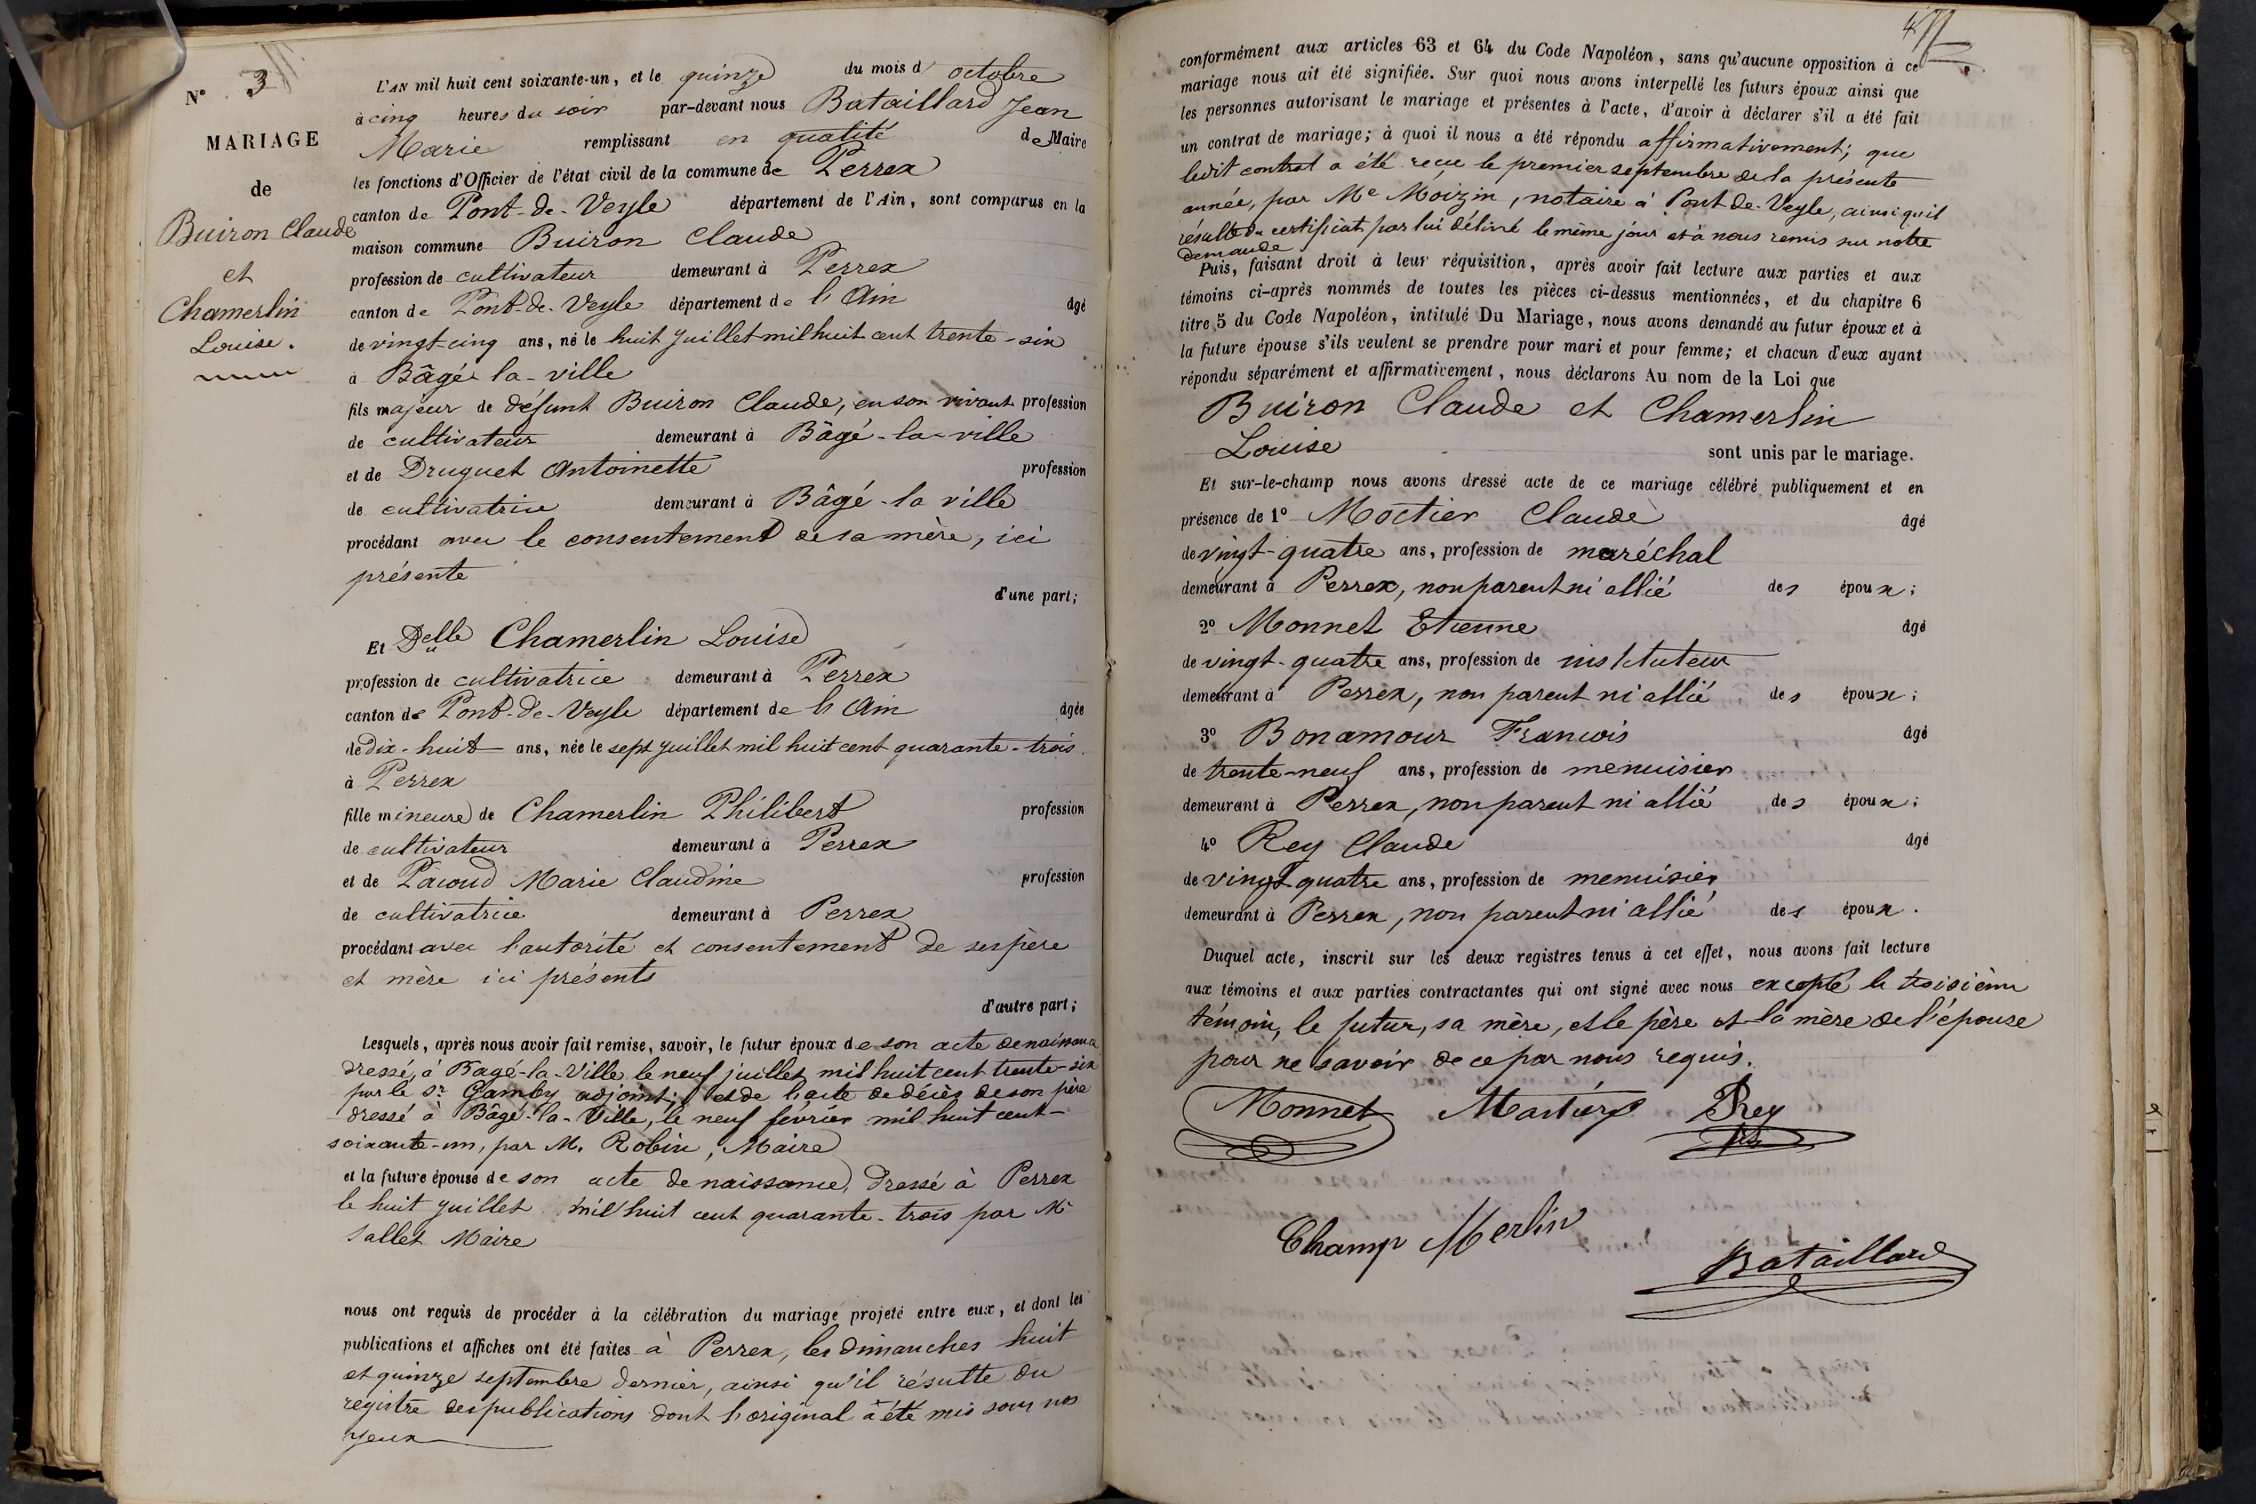 N° 3
MARIAGE
de
Buiron Claude
et
Chamerlin
Louise.
L'AN mil huit cent soixante-un, et le quinze du mois d'octobre
à cinq heures du soir par-devant nous Bataillard Jean
Marie remplissant en qualité de Maire
les fonctions d'Officier de l'état civil de la commune de Perrex
canton de Pont-de-Veyle département de l'Ain, sont comparus en la
maison commune Buiron Claude
profession de cultivateur demeurant à Perrex
canton de Pont-de-Veyle département de l'Ain âgé
de vingt-cinq ans, né le huit juillet mil huit cent trente-six
à Bâgé-la-ville
fils majeur de défunt Buiron Claude, en son vivant profession
de cultivateur demeurant à Bâgé-la-ville
et de Druguet Antoinette profession
de cultivatrice demeurant à Bâgé-la ville
procédant avec le consentement de sa mère, ici
présente
d'une part;
Et Delle Chamerlin Louise
profession de cultivatrice demeurant à Perrex
canton de Pont-de-Veyle département de l'Ain âgée
de dix-huit ans, née le sept juillet mil huit cent quarante-trois
à Perrex
fille mineure de Chamerlin Philibert profession
de cultivateur demeurant à Perrex
et de Pacoud Marie Claudine profession
de cultivatrice demeurant à Perrex
procédant avec l'autorité et consentement de ses père
et mère ici présents
d'autre part;
Lesquels, après nous avoir fait remise, savoir, le futur époux de son acte de naissance
dressé, à Bagé-la-Ville le neuf juillet mil huit cent trente-six
par le Sr Gamby adjoint; et de l'acte de décès de son père
dressé à Bâgé-la-Ville, le neuf février mil huit cent
soixante-un, par M. Robin, Maire
et la future épouse de son acte de naissance, dressé à Perrex
le huit juillet mil huit cent quarante-trois par Mr
Sallet Maire
nous ont requis de procéder à la célébration du mariage projeté entre eux, et dont les
publications et affiches ont été faites à Perrex, les dimanches huit
et quinze septembre dernier, ainsi qu'il résulte du
registre des publications dont l'original a été mis sous nos
yeux
conformément aux articles 63 et 64 du Code Napoléon, sans qu'aucune opposition à ce
mariage nous ait été signifiée. Sur quoi nous avons interpellé les futurs époux ainsi que
les personnes autorisant le mariage et présentes à l'acte, d'avoir à déclarer s'il a été fait
un contrat de mariage; à quoi il nous a été répondu affirmativement; que
ledit contrat a été reçu le premier septembre de la présente
année, par Me Moizin, notaire à Pont-de-Veyle, ainsi qu'il
résulte du certificat par lui délivré le même jour et à nous remis sur notre
demande
Puis, faisant droit à leur réquisition, après avoir fait lecture aux parties et aux
témoins ci-après nommés de toutes les pièces ci-dessus mentionnées, et du chapitre 6
titre 5 du Code Napoléon, intitulé Du Mariage, nous avons demandé au futur époux et à
la future épouse s'ils veulent se prendre pour mari et pour femme; et chacun d'eux ayant
répondu séparément et affirmativement, nous déclarons Au nom de la Loi que
Buiron Claude et Chamerlin
Louise sont unis par le mariage.
Et sur-le-champ nous avons dressé acte de ce mariage célébré publiquement et en
présence de 1° Moctier Claude âgé
de vingt-quatre ans, profession de maréchal
demeurant à Perrex, non parent ni allié des époux;
2° Monnet Etienne âgé
de vingt-quatre ans, profession de instituteur
demeurant à Perrex, non parent ni allié des époux;
3° Bonamour Francois âgé
de trente-neuf ans, profession de menuisier
demeurant à Perrex, non parent ni allié des époux;
4° Rey Claude âgé
de vingt-quatre ans, profession de menuisier
demeurant à Perrex, non parent ni allié des époux.
Duquel acte, inscrit sur les deux registres tenus à cet effet, nous avons fait lecture
aux témoins et aux parties contractantes qui ont signé avec nous excepté le troisième
témoin, le futur, sa mère, et le père et la mère de l'épouse
pour ne savoir de ce par nous requis.
Monnet Rey
Champ Merlin
Bataillard